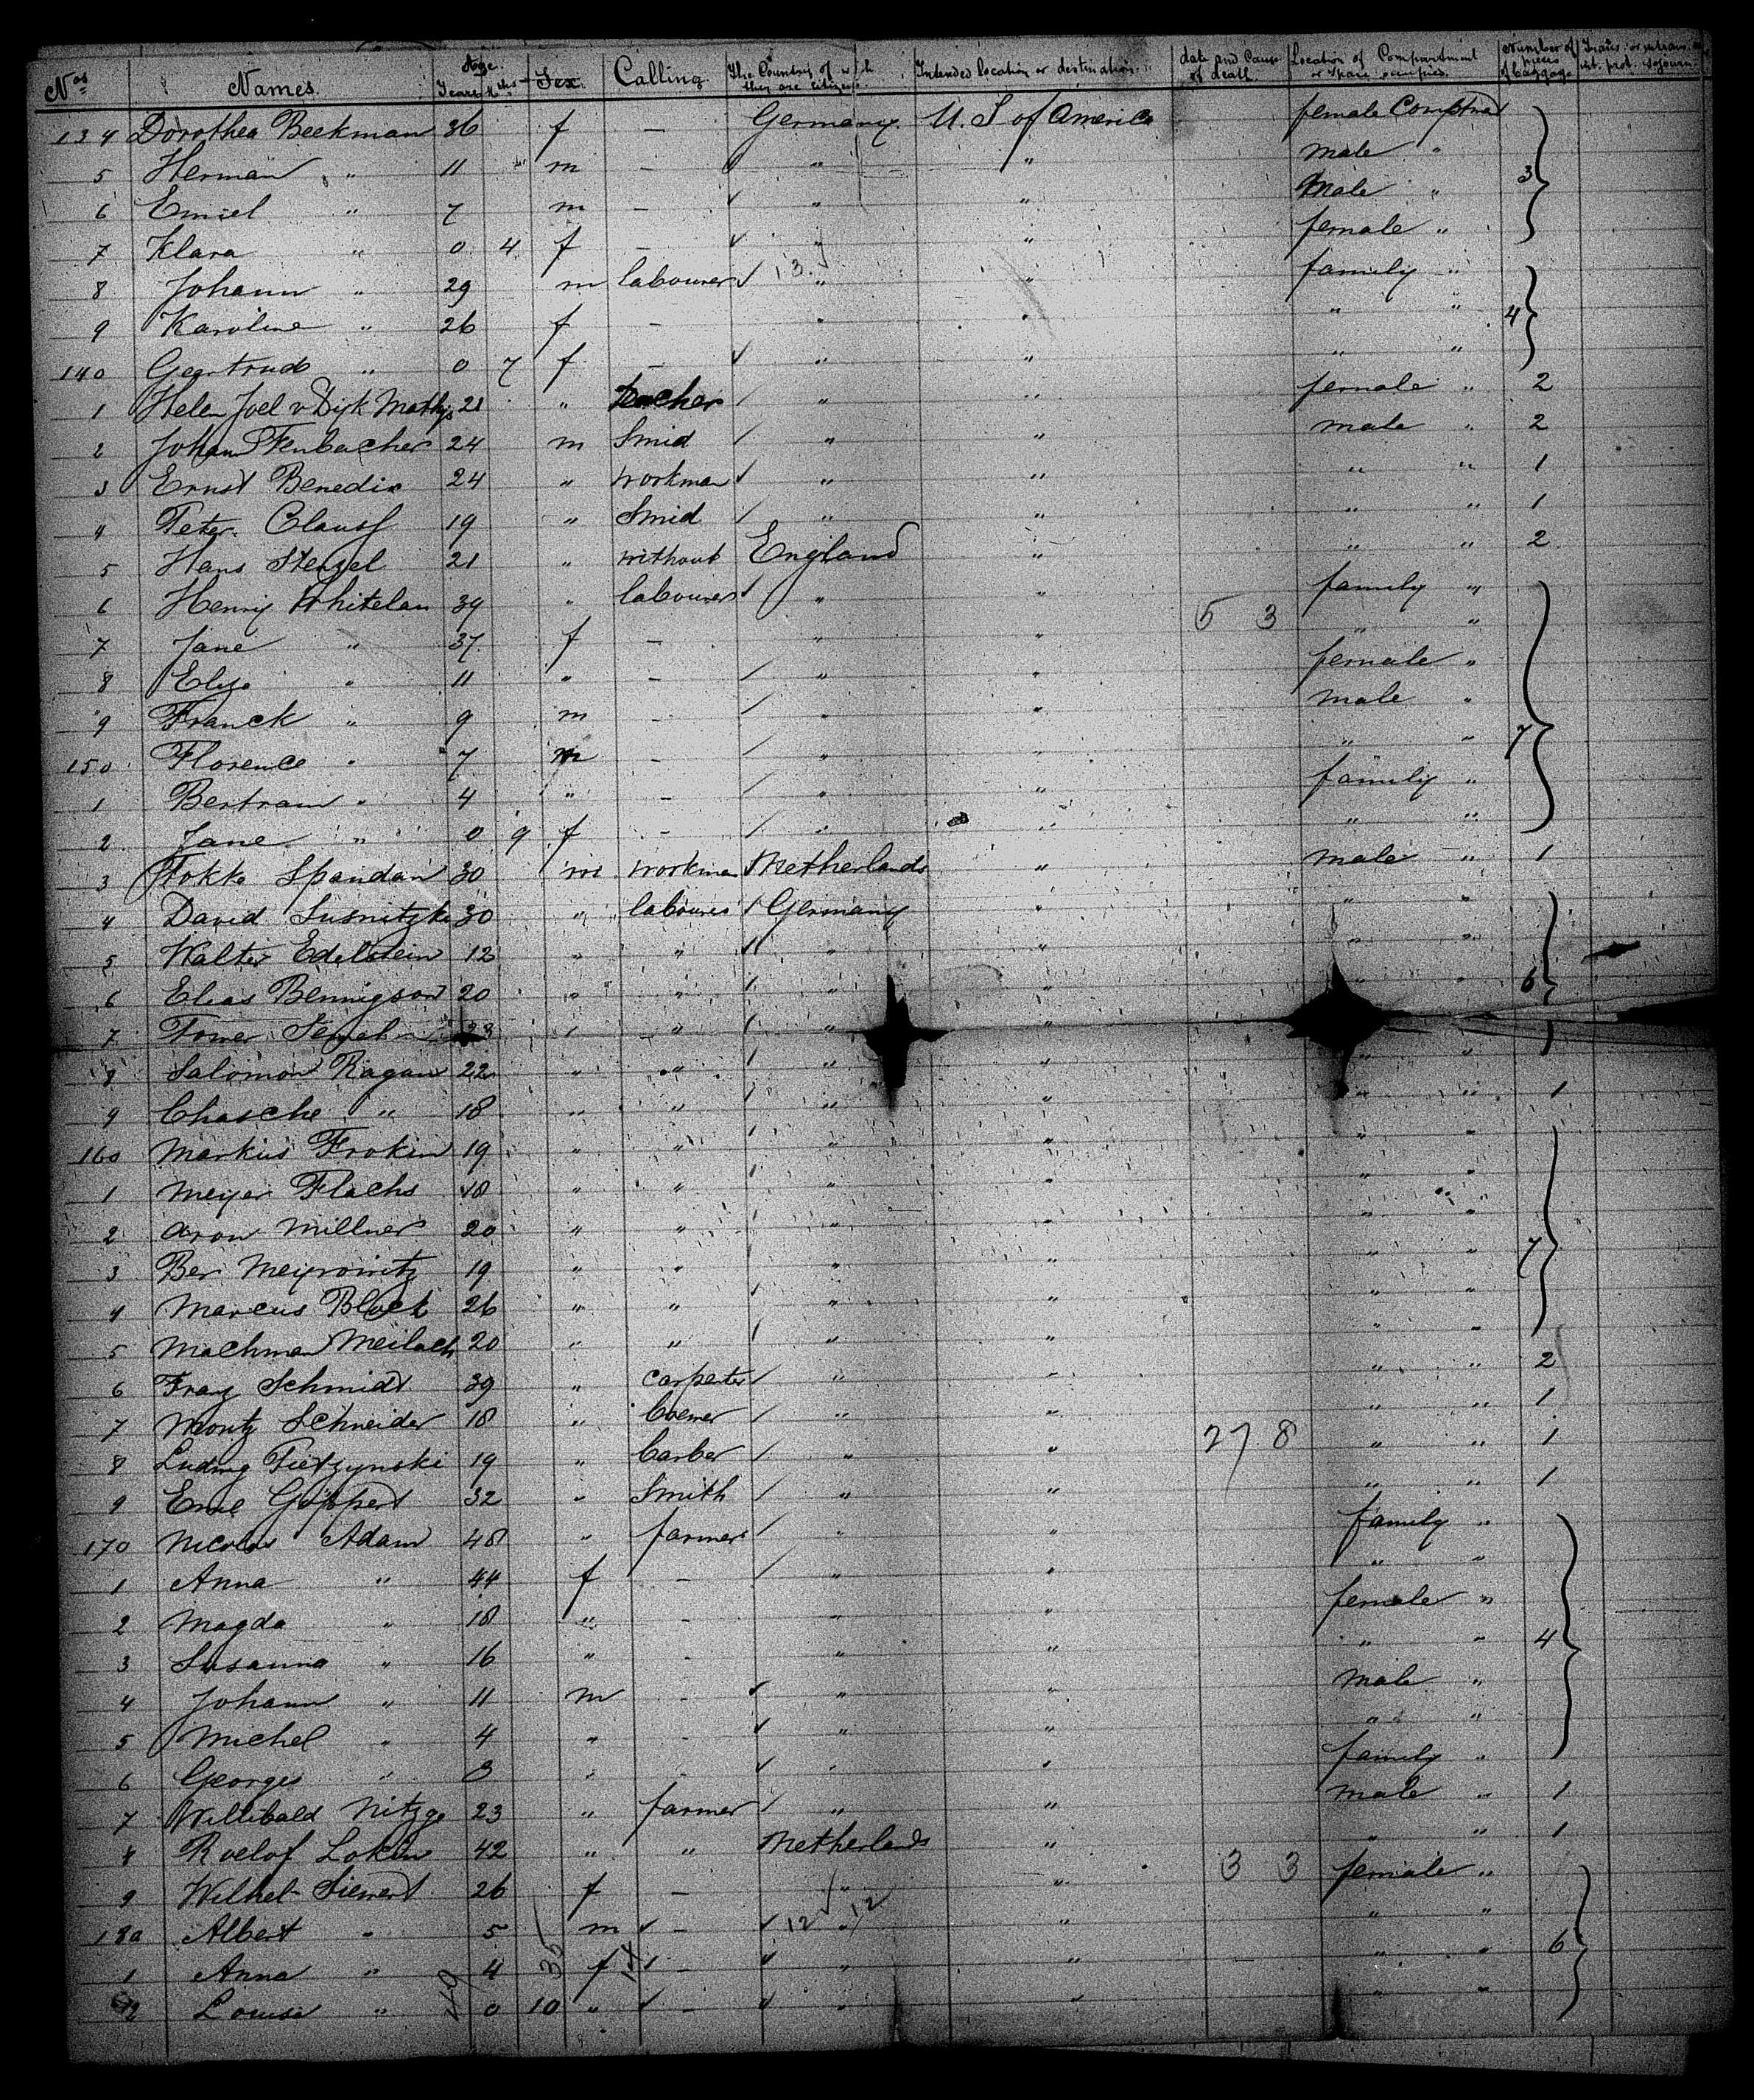 Nos Names. Age. Years Mths Sex. Calling. The Country of which they are citizens Intended location or destination. date and Cause of death Location of Compartment or Space occupied. Number of pieces of baggage
134 Dorothea Beekman 36 f — Germany. U. S of America female
5 Herman " 11 m — " " male " 3
6 Emiel " 7 m — " " male "
7 Klara " 0 4 f — " " female "
8 Johann " 29 m labourer 13. " " family "
9 Karoline " 26 f — " " " " 4
140 Geertrud " 0 7 f — " " " "
1 Helen Joel v Dijk Mathijs 21 " teacher " " female " 2
2 Johann 24 m Smid " " male " 2
3 Ernst Benedix 24 " workman " " " " 1
4 Peter Clausf 19 " Smid " " " " 1
5 Hans Stenzel 21 " without England " " " 2
6 Henry Whitelau 39 " labourer " " family "
7 Jane " 37 f — " " 5 3 " "
8 Eliza " 11 " — " " female "
9 Franck " 9 m — " " male "
150 Florence " 7 m — " " " " 7
1 Bertram " 4 " — " " family "
2 Jane " 0 9 f — " " " "
3 Fokko Spandau 30 m workman Netherlands " male " 1
4 David Susnitzki 30 " labourer Germany " " "
5 Walter Edelstein 12 " " " " " "
6 Elias Bennigson 20 " " " " " " 6
7 " " "
8 Salomon Ragau 22 " " " " " "
9 Chasche " 18 " " " " " " 1
160 Markus Frokin 19 " " " " "
1 Meyer Flachs 18 " " " " "
2 Aron Millner 20 " " " " " "
3 Ber Meyrowitz 19 " " " " " " 7
4 Marcus Block 26 " " " " " "
5 Nachman Meilach 20 " " " " " "
6 Franz Schmidt 39 " carpenter " " " " 2
7 Moritz Schneider 18 " " " " " 1
8 Ludwig Pietzynski 19 " barber " " 27 8 " " 1
9 Emil Goppert 32 " Smith " " " " 1
170 Nicolas Adam 48 " farmer " " family "
1 Anna " 44 f — " " " "
2 Magda " 18 " - " " female "
3 Susanna " 16 " - " " " " 4
4 Johann " 11 m - " " male "
5 Michel " 4 " - " " " "
6 Georges " 3 " - " " family "
7 Willibald Nitzge 23 " farmer " " male " 1
8 Roelof Loken 42 " " Netherlands " " " 1
9 Wilhel- Siemert 26 f — " " 3 3 female "
180 Albert " 5 m — 12 " 12 " " "
1 Anna " 4 35 f 14 — " " " " 6
2 Louise " 49 0 10 " — " " " "